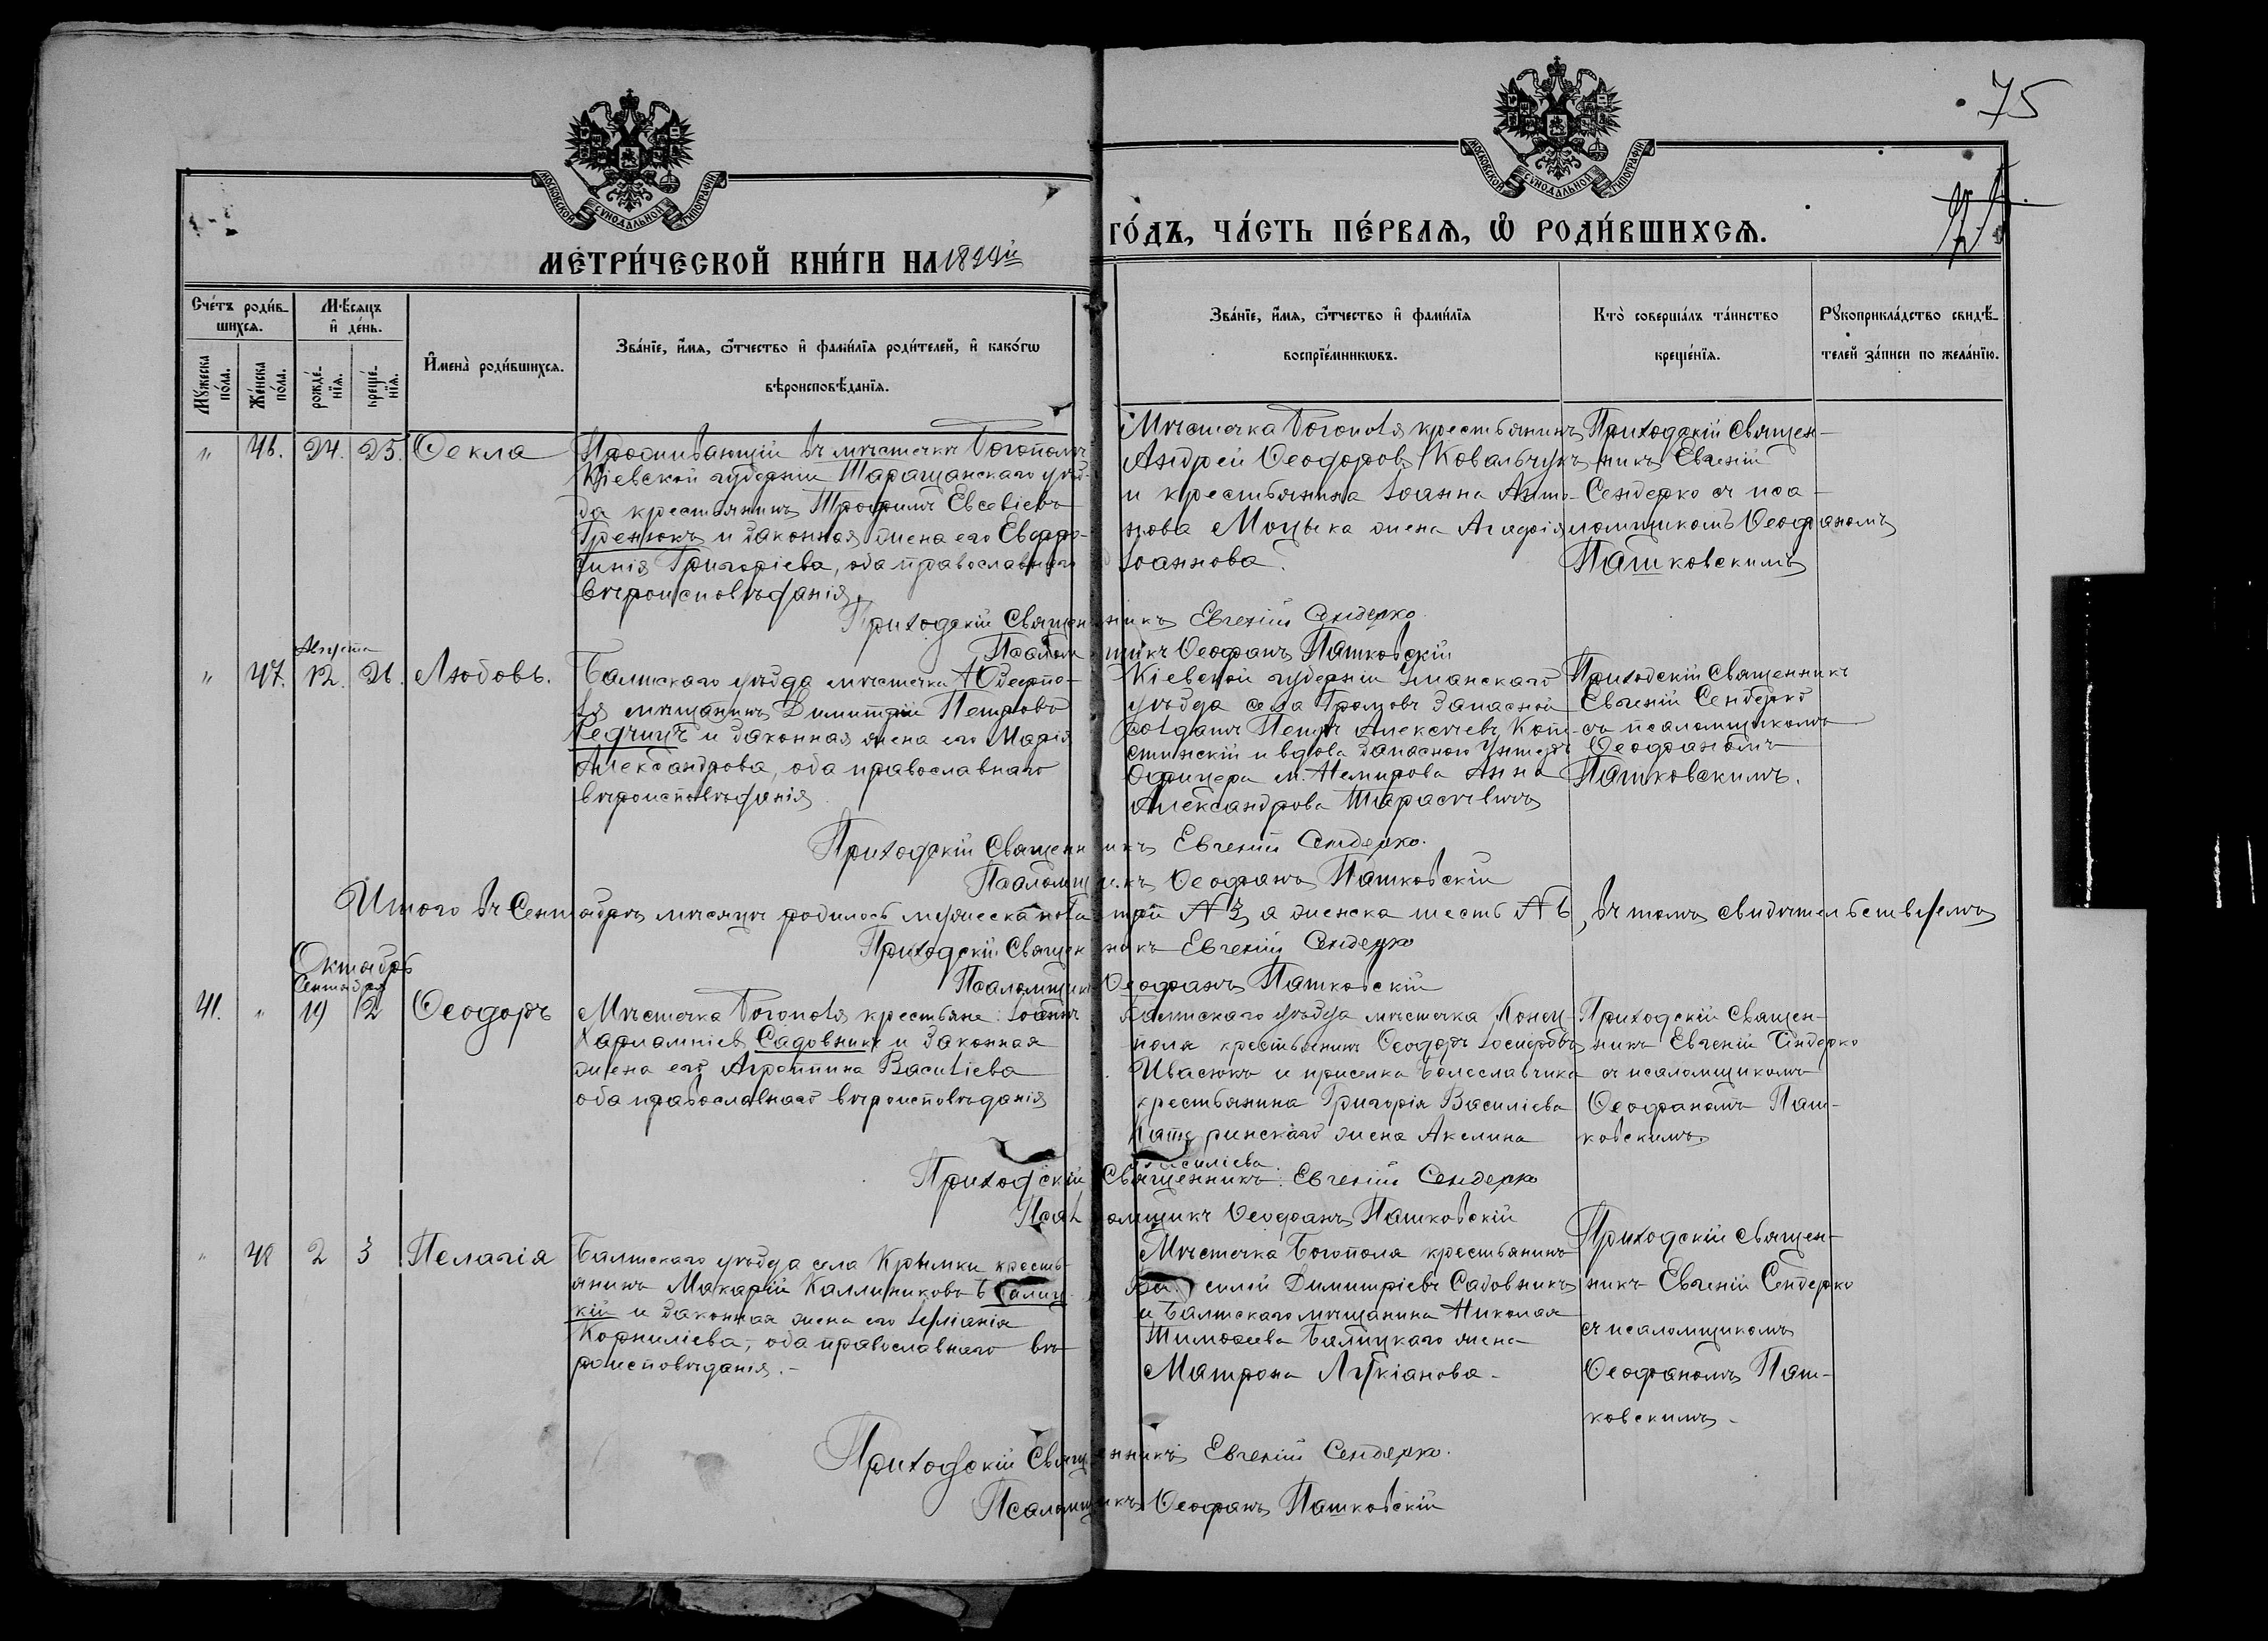 75
МОСКОВСКОЙ СУНОДАЛЬНОЙ ТИПОГРАФІИ
МОСКОВСКОЙ СУНОДАЛЬНОЙ ТИПОГРАФІИ
МЕТРИ́ЧЕСКОЙ КНИ́ГИ НА 1899й
ГО́ДЪ, ЧА́СТЬ ПЕ́РВАЯ, Ѽ РОДИ́ВШИХСЯ.
Сче́тъ роди́в-
шихся.
Мѣ́сяцъ
и҆ де́нь.
Му́жеска
по́ла.
Же́нска
по́ла.
рожде́-
нїя.
креще́-
нїя.
И҆мена̀ роди́вшихся.
Зва́нїе, и҆́мя, ѻ҆́тчество и҆ фами́лїя роди́телей, и҆ како́гѡ
вѣроисповѣ́данїя.
Зва́нїе, и҆́мя, ѻ҆́тчество и҆ фами́лїя
воспрїе́мникѡвъ.
Кто̀ соверша́лъ та́инство
креще́нїя.
Рꙋкоприкла́дство свидѣ́-
телей за́писи по жела́нїю.
" 46. 24. 25. Ѳекла
Проживающій въ мѣстечкѣ Богополѣ
Кіевской губерніи Таращанскаго уѣз-
да крестьянинъ Трофимъ Евсевіевъ
Гренюкъ и законная жена его Евдо-
кинія Григоріева, оба православнаго
вѣроисповѣданія.
Мѣстечка Богополя крестьянинъ
Андрей Ѳеодоровъ Ковальчукъ
и крестьянина Іоанна Анто-
нова Моцыка жена Агафія
Іоаннова.
Приходскій Священ-
никъ Евгеній
Сендерко съ пса-
ломщикомъ Ѳеофаномъ
Пашковскимъ
Приходскій Священникъ Евгеній Сендерко.
Псаломщикъ Ѳеофанъ Пашковскій
Августа
" 47. 12. 26. Любовь.
Балтскаго уѣзда мѣстечка
мѣщанинъ Димитрій Петровъ
и законная жена его Марія
Александрова, оба православнаго
вѣроисповѣданія.
Кіевской губерніи Уманскаго
уѣзда села Громовъ запасной
солдатъ Петръ Алексѣевъ Копе-
стинскій и вдова запаснаго Унтеръ
Офицера м. Немирова Анна
Александрова Тарасѣвичъ
Приходскій Священникъ
Евгеній Сендерко
съ псаломщикомъ
Ѳеофаномъ
Пашковскимъ.
Приходскій Священникъ Евгеній Сендерко.
Псаломщикъ Ѳеофанъ Пашковскій
Итого въ Сентябрѣ мѣсяцѣ родилось мужеска пола три № 3, а женска шесть № 6, въ томъ свидѣтельствуемъ
Приходскій Священникъ Евгеній Сендерко
Псаломщикъ Ѳеофанъ Пашковскій
Октябрь
Сентября
41. " 19 2 Ѳеодоръ
Мѣстечка Богополя крестьяне: Іоаннъ
Харлампіевъ Садовникъ и законная
жена его Агриппина Василіева
оба православнаго вѣроисповѣданія
Балтскаго уѣзда мѣстечка Конец-
поля крестьянинъ Ѳеодоръ Іосифовъ
Ивасюкъ и приселка Болеславчика
крестьянина Григорія Василіева
Катеринскаго жена Акелина
Василіева.
Приходскій Священ-
никъ Евгеній Сендерко
съ псаломщикомъ
Ѳеофаномъ Паш-
ковскимъ
Приходскій Священникъ: Евгеній Сендерко
Псаломщикъ Ѳеофанъ Пашковскій
" 48 2 3 Пелагія
Балтскаго уѣзда села Крымки кресть-
янинъ Макарій Каллиниковъ Балиц-
кій и законная жена его Іуліанія
Корниліева, оба православнаго вѣ-
роисповѣданія.-
Мѣстечка Богополя крестьянинъ
Василій Димитріевъ Садовникъ
и Балтскаго мѣщанина Николая
Тимоѳеева Балицкаго жена
Матрона Лукіанова.
Приходскій Священ-
никъ Евгеній Сендерко
съ псаломщикомъ
Ѳеофаномъ Паш-
ковскимъ.
Приходскій Священникъ Евгеній Сендерко.
Псаломщикъ Ѳеофанъ Пашковскій